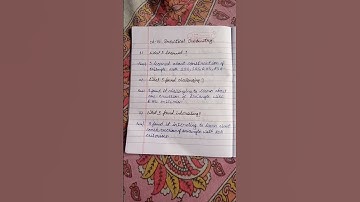 Ch-10, Practical Geometry
1) What I learned ?
Ans) I learned about construction of
triangle with SSS, SAS, ASA, RHS
2) What I found challenging ?
Ans) I found it challenging to learn about
construction of triangle with
RHS criterion
3) What I found interesting ?
Ans) I found it interesting to learn about
construction of triangle with SSS
criterion